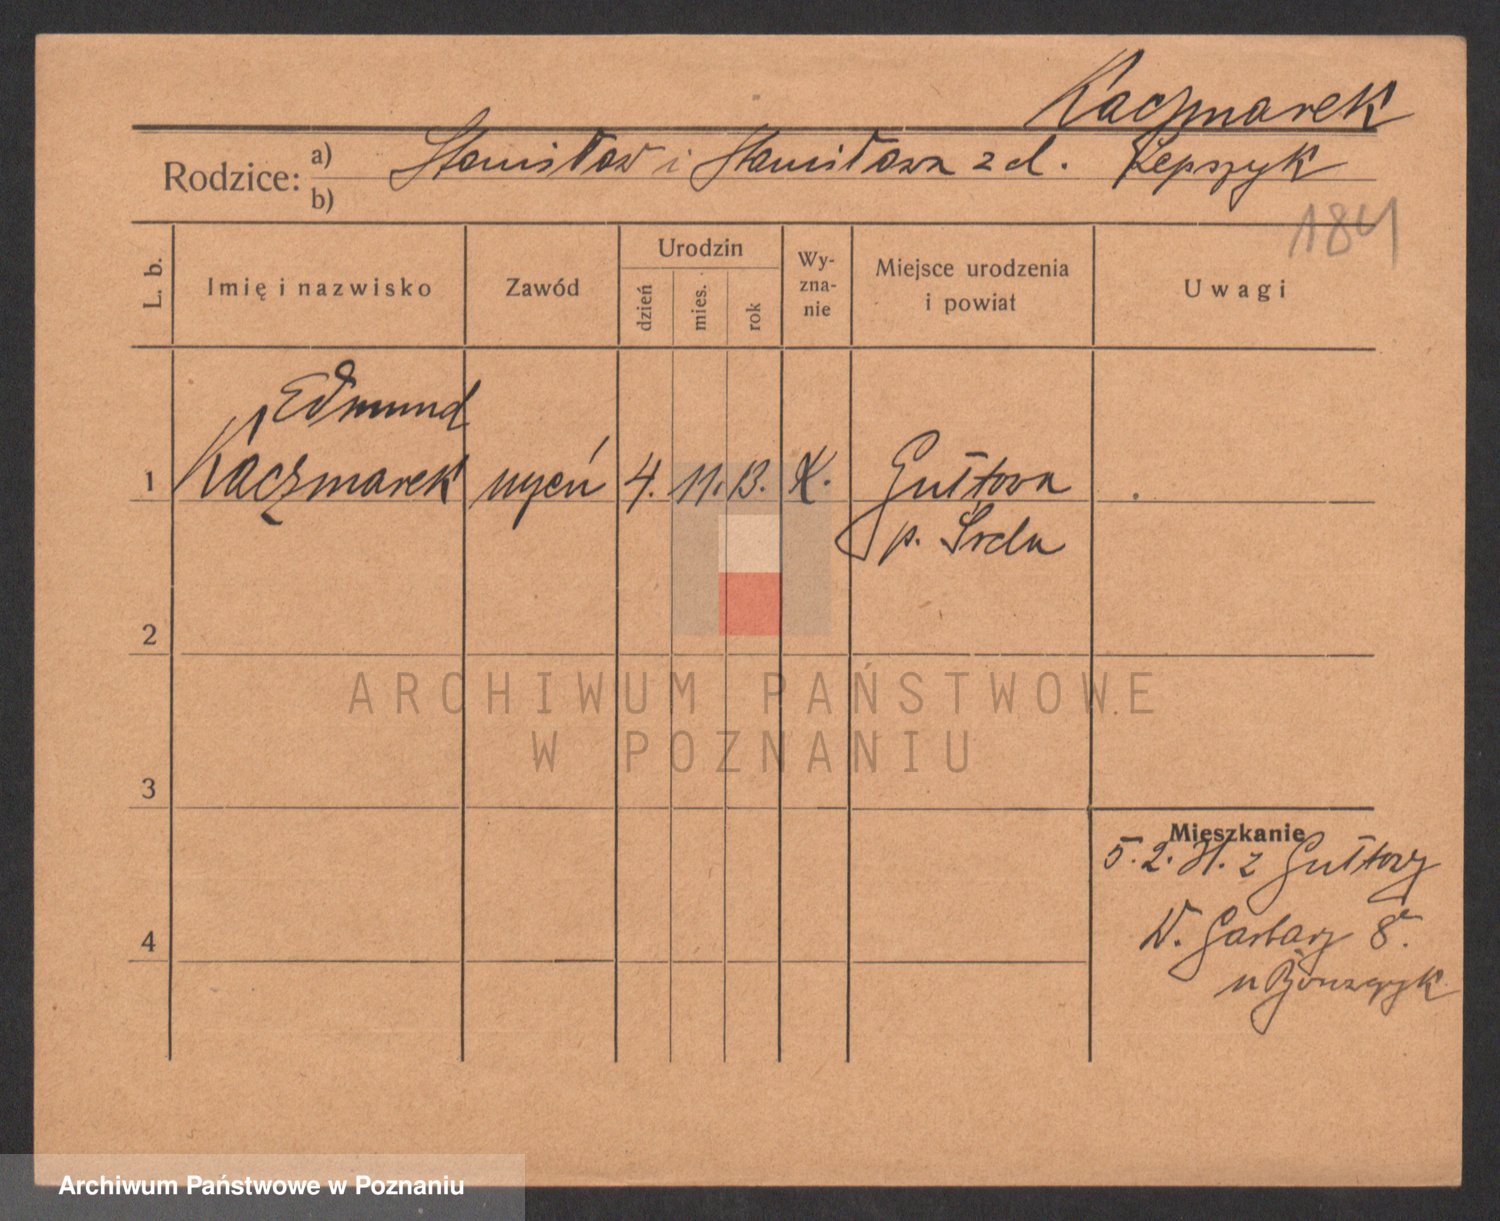 Kaczmarek
Rodzice: a) Stanisław i Stanisława z d. Lepszyk
b)
184
L. b.
Imię i nazwisko
Zawód
Urodzin
dzień
mies.
rok
Wy-
zna-
nie
Miejsce urodzenia
i powiat
Uwagi
Edmund
1 Kaczmarek uczeń 4. 11. 13. K. Gułtowa
p. Środa
2
ARCHIWUM PAŃSTWOWE
W POZNANIU
3
Mieszkanie
5. 2. 31. z Gułtowy
4
W. Garbary 8.
u
Archiwum Państwowe w Poznaniu